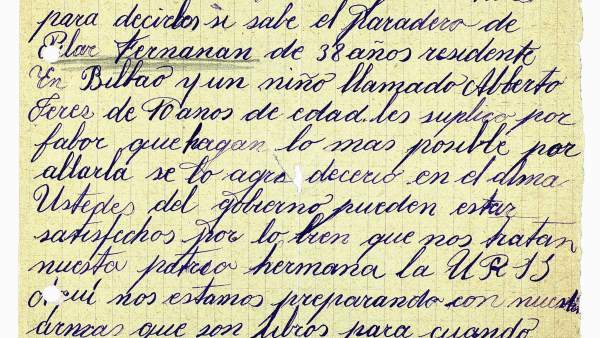 para decirles si sabe el paradero de
Pilar Fernanan de 38 años residente
En Bilbao y un niño llamado Alberto
Feres de 10 anos de edad. les suplico por
fabor que hagan lo mas posible por
allarla se lo agradecere en el alma
Ustedes del gobierno pueden estar
satisfechos por lo bien que nos tratan
nuestra patria hermana la URSS
aqui nos estamos preparando con nuestras
armas que son libros para cuando